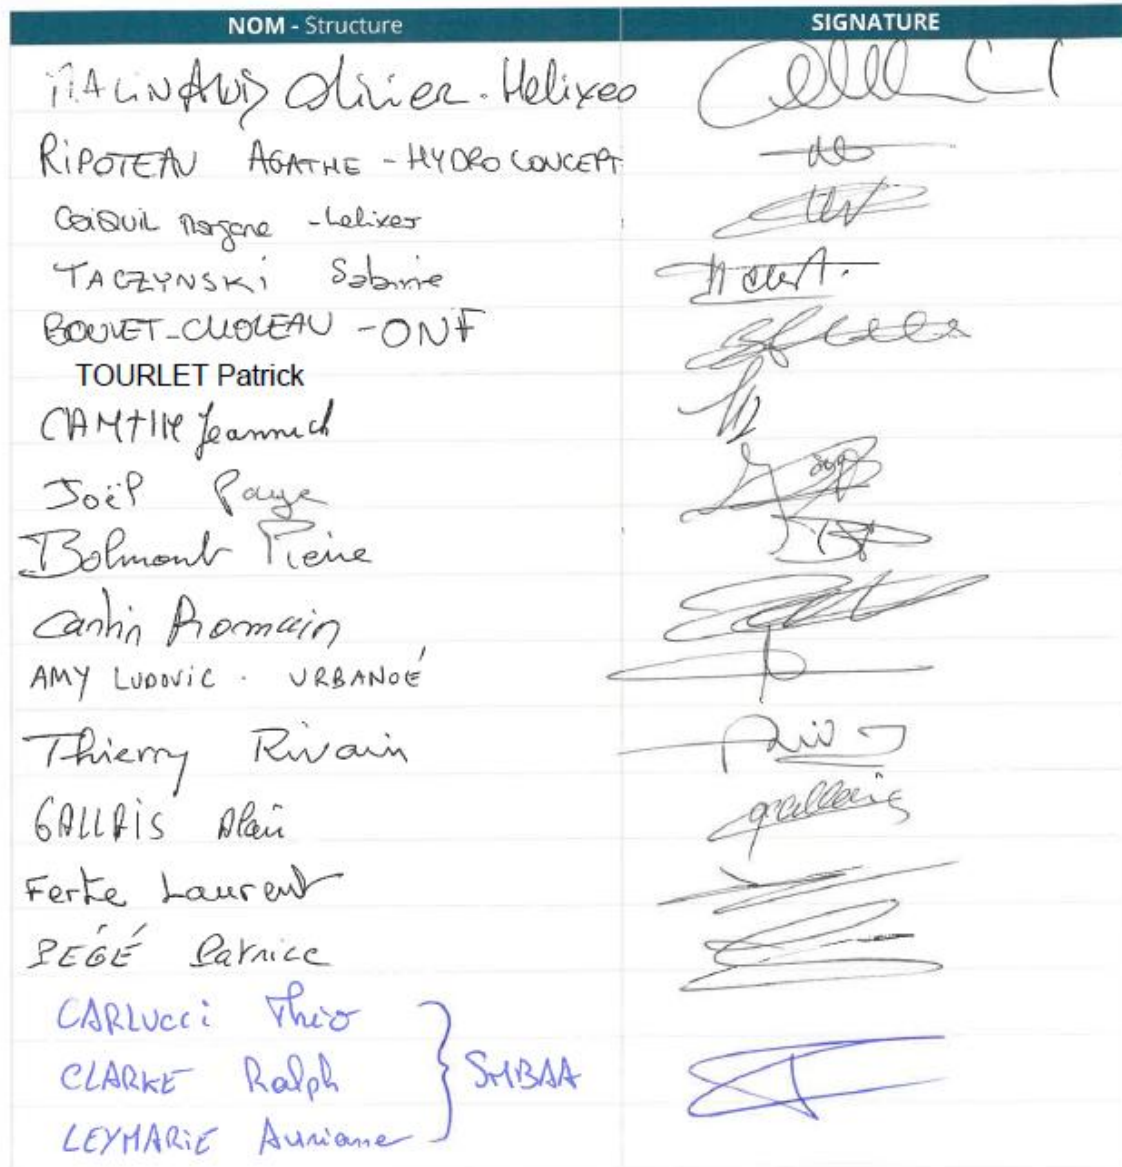 NOM - Structure SIGNATURE
MALINAUD Olivier - Helixeo
RIPOTEAU AGATHE - HYDRO CONCEPT
Morgane - helixeo
TACZYNSKI Sabine
BOUVET-CHOLEAU - ONF
TOURLET Patrick
Jeannick
Joël
Bolmont Pierre
Cantin Romain
AMY LUDOVIC - URBANOÉ
Thierry Rivain
GALLAIS Alain gallais
Ferte Laurent
PÉGÉ Patrice
CARLUCCI Théo
CLARKE Ralph SMBAA
LEYMARIE Auriane